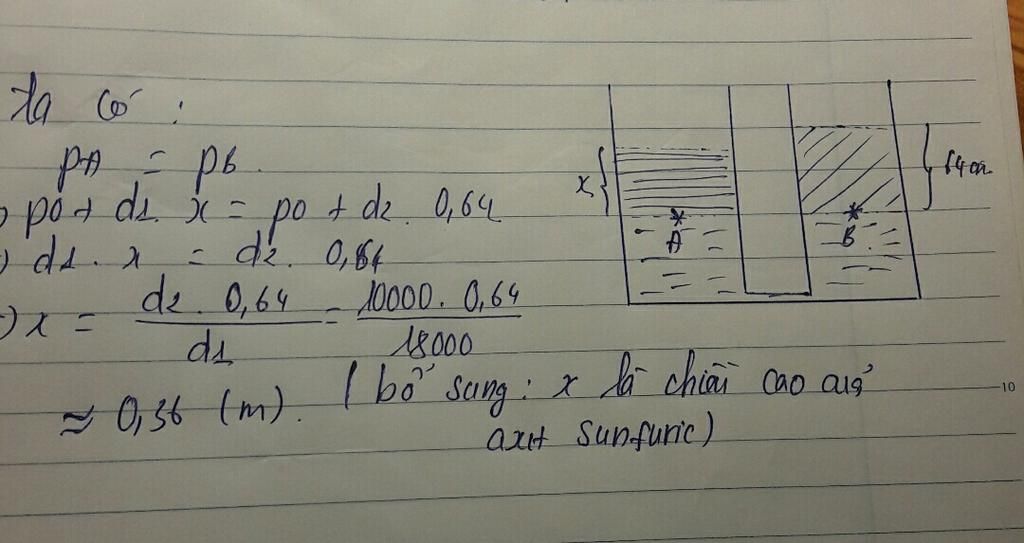 Ta có :
pA = pB.
) po + d1. x = po + d2. 0,64
) d1. x = d2. 0,64
) x = d2. 0,64 / d1 = 10000. 0,64 / 18000
≈ 0,36 (m). ( bổ sung: x là chiều cao của
axit sunfuric)
x
A
B
64cm
10